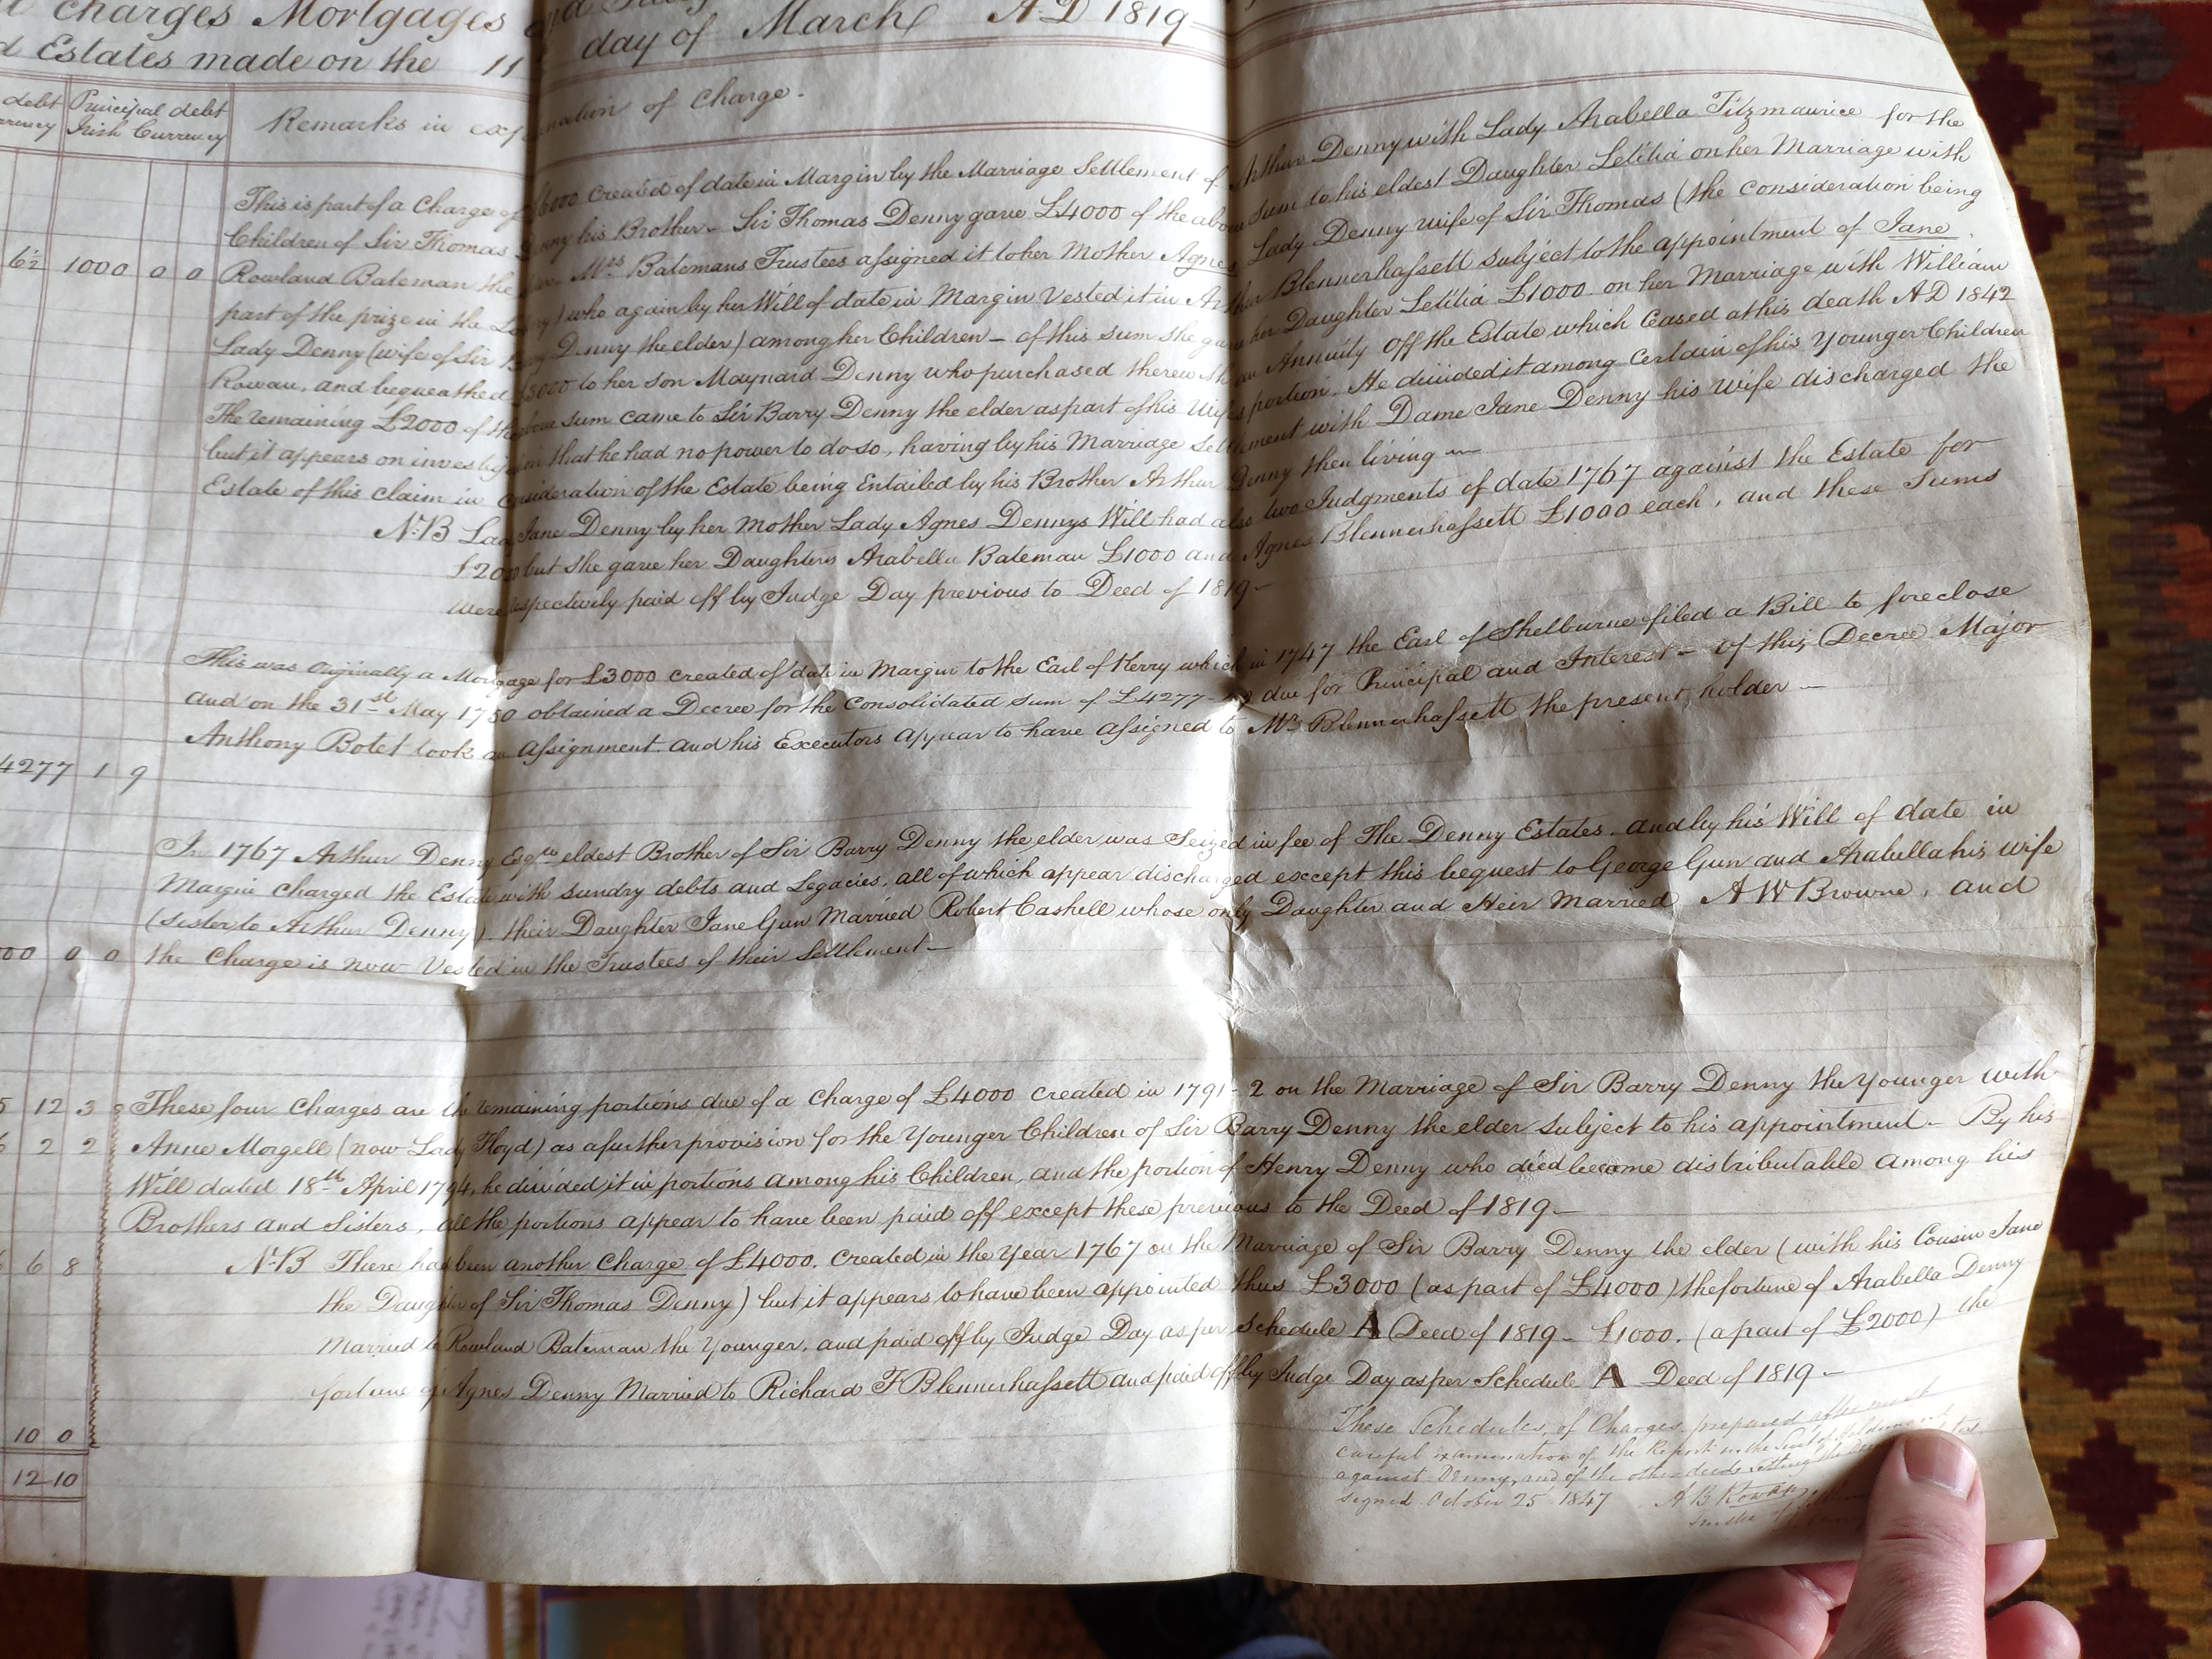 charges Mortgages and
Estates made on the 11 day of March A.D 1819
debt Principal debt Remarks in explanation of Charge.
Irish Currency
This is part of a Charge of £6000 created of date in Margin by the Marriage Settlement of Arthur Denny with Lady Arabella Fitzmaurice for the
Children of Sir Thomas Denny his Brother - Sir Thomas Denny gave £4000 of the above Sum to his eldest Daughter Letitia on her Marriage with
6½ 1000 0 0 Rowland Bateman the Mrs Batemans Trustees assigned it to her Mother Agnes Lady Denny wife of Sir Thomas (the consideration being
part of the prize in the who again by her Will of date in Margin Vested it in Arthur Blennerhassett subject to the appointment of Jane
Lady Denny (wife of Sir Barry Denny the elder) among her Children - of this sum she gave her Daughter Letitia £1000 on her Marriage with William
Rowan, and bequeathed £3000 to her son Maynard Denny who purchased therewith an Annuity off the Estate which ceased at his death AD 1842
The remaining £2000 of the above sum came to Sir Barry Denny the elder as part of his Wifes portion. He divided it among certain of his Younger Children
but it appears on investigation that he had no power to do so, having by his Marriage Settlement with Dame Jane Denny his Wife discharged the
Estate of this claim in Consideration of the Estate being Entailed by his Brother Arthur Denny then living
N.B Lady Jane Denny by her Mother Lady Agnes Dennys Will had also two Judgments of date 1767 against the Estate for
£2000 but she gave her Daughters Arabella Bateman £1000 and Agnes Blennerhassett £1000 each, and these Sums
were respectively paid off by Judge Day previous to Deed of 1819 -
This was Originally a Mortgage for £3000 created of date in Margin to the Earl of Kerry which in 1747 the Earl of Shelburne filed a Bill to foreclose
and on the 31st May 1750 obtained a Decree for the Consolidated Sum of £4277-1-9 due for Principal and Interest - of this Decree Major
Anthony Botet took an Assignment. and his Executors appear to have assigned to Mr Blennerhassett the present holder -
4277 1 9
In 1767 Arthur Denny Esqre eldest Brother of Sir Barry Denny the elder was Seized in fee of The Denny Estates. and by his Will of date in
Margin charged the Estate with sundry debts and Legacies, all of which appear discharged except this bequest to George Gun and Arabella his Wife
(sister to Arthur Denny) their Daughter Jane Gun Married Robert Cashell whose only Daughter and Heir Married A W Browne, and
00 0 0 the Charge is now Vested in the Trustees of their Settlement -
5 12 3 These four Charges are the remaining portions due of a Charge of £4000 created in 1791-2 on the Marriage of Sir Barry Denny the Younger with
6 2 2 Anne Morgell (now Lady Floyd) as a further provision for the Younger Children of Sir Barry Denny the elder subject to his appointment - By his
Will dated 18th April 1794, he divided it in portions among his Children, and the portion of Henry Denny who died became distributable among his
Brothers and Sisters, all the portions appear to have been paid off except these previous to the Deed of 1819 -
6 6 8 N.B There had been another Charge of £4000. created in the Year 1767 on the Marriage of Sir Barry Denny the elder (with his Cousin Jane
the Daughter of Sir Thomas Denny) but it appears to have been appointed thus £3000 (as part of £4000) the fortune of Arabella Denny
Married to Rowland Bateman the Younger, and paid off by Judge Day as per Schedule A Deed of 1819 - £1000. (a part of £2000) the
fortune of Agnes Denny Married to Richard F Blennerhassett and paid off by Judge Day as per Schedule A Deed of 1819 -
10 0
12 10
These Schedules of Charges, prepared after most
careful examination of the Report in the Suit of
against Denny, and of the other deeds
signed October 25 1847 A B Rowan